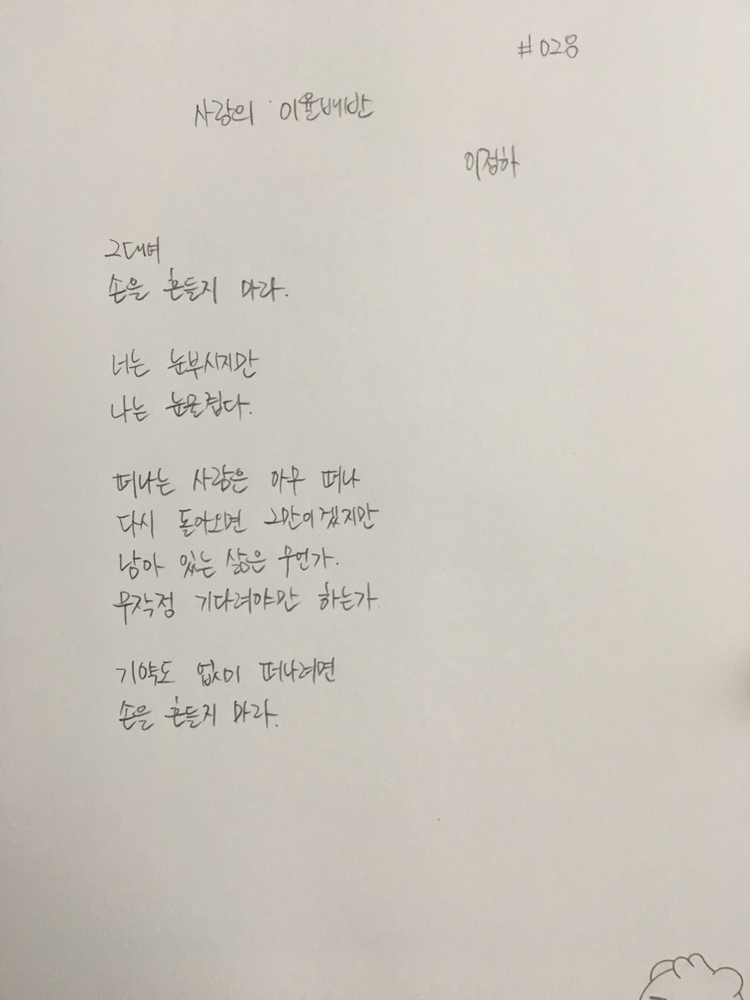 #028
사랑의 이율배반
이정하
그대여
손을 흔들지 마라.
너는 눈부시지만
나는 눈물겹다.
떠나는 사람은 아무 떠나
다시 돌아오면 그만이겠지만
남아 있는 삶은 무언가.
무작정 기다려야만 하는가
기약도 없이 떠나려면
손을 흔들지 마라.